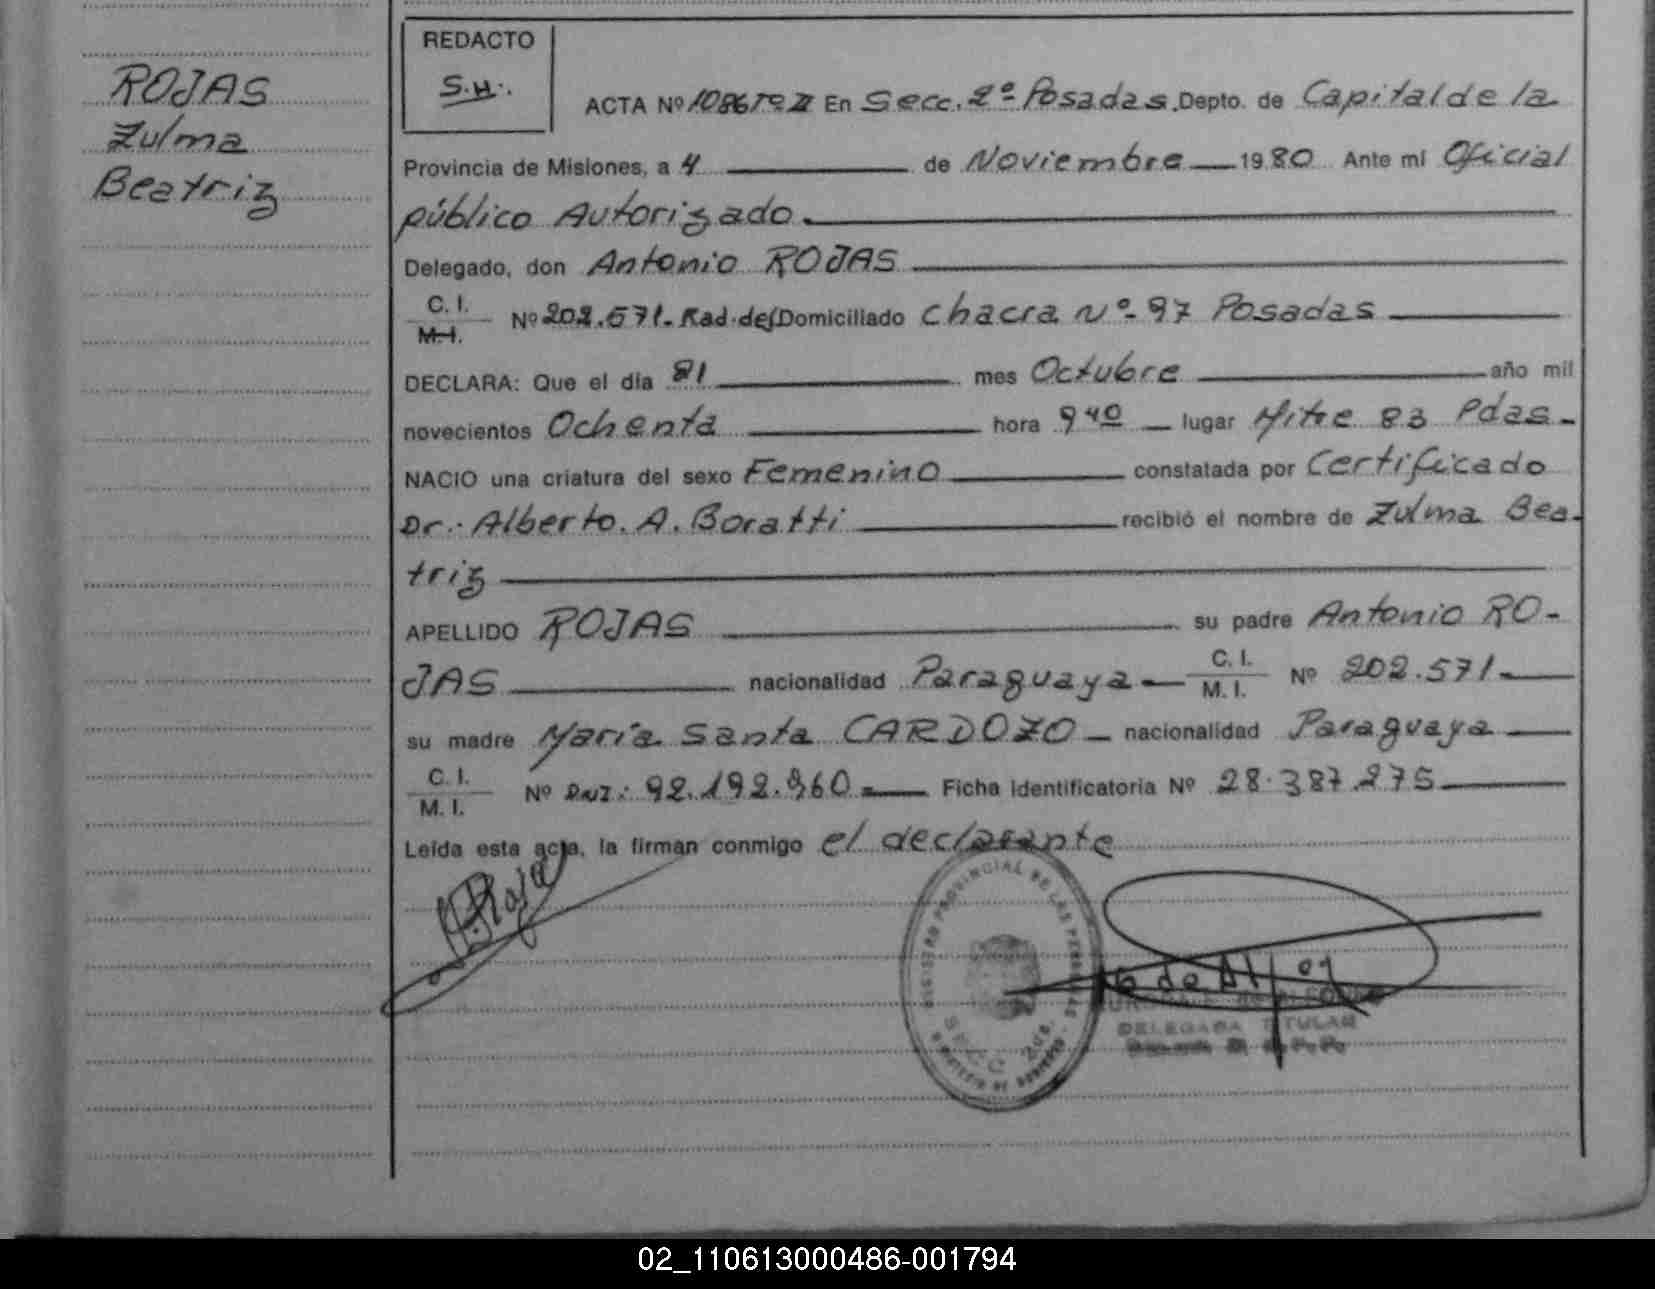 ROJAS
Zulma
Beatriz
REDACTO
S.H.
ACTA Nº 1086 Tº II En Secc. 2º Posadas. Depto. de Capital de la
Provincia de Misiones, a 4 de Noviembre 1980 Ante mi Oficial
público Autorizado.
Delegado, don Antonio ROJAS
C. I.
M. I.
Nº 202.571. Rad. def Domiciliado Chacra Nº 97 Posadas
DECLARA: Que el día 21 mes Octubre año mil
novecientos Ochenta hora 9 40 lugar Mitre 83 Pdas.
NACIO una criatura del sexo Femenino constatada por Certificado
Dr. Alberto. A. Boratti recibió el nombre de Zulma Bea-
triz
APELLIDO ROJAS su padre Antonio RO-
JAS nacionalidad Paraguaya C. I. M. I. Nº 202.571.
su madre María Santa CARDOZO nacionalidad Paraguaya
C. I.
M. I.
Nº DNI: 92.192.960. Ficha Identificatoria Nº 28.387.275
Leída esta acta, la firman conmigo el declarante
REGISTRO PROVINCIAL DE LAS PERSONAS
SECC 2da.
MINISTERIO DE GOBIERNO
DELEGADA TITULAR
02_110613000486-001794